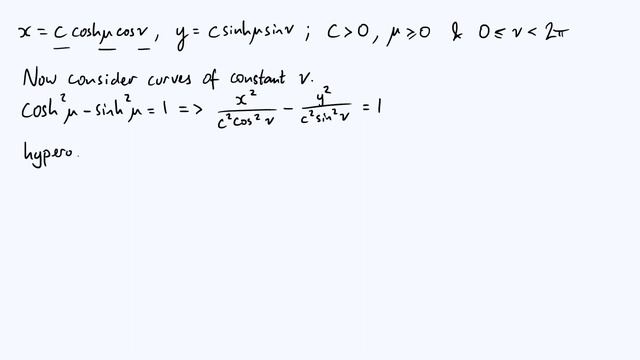 x = c coshμ cosν , y = c sinhμ sinν ; c > 0 , μ ⩾ 0 & 0 ≤ ν < 2π
Now consider curves of constant ν.
cosh²μ - sinh²μ = 1 => x²/c²cos²ν - y²/c²sin²ν = 1
hypero.